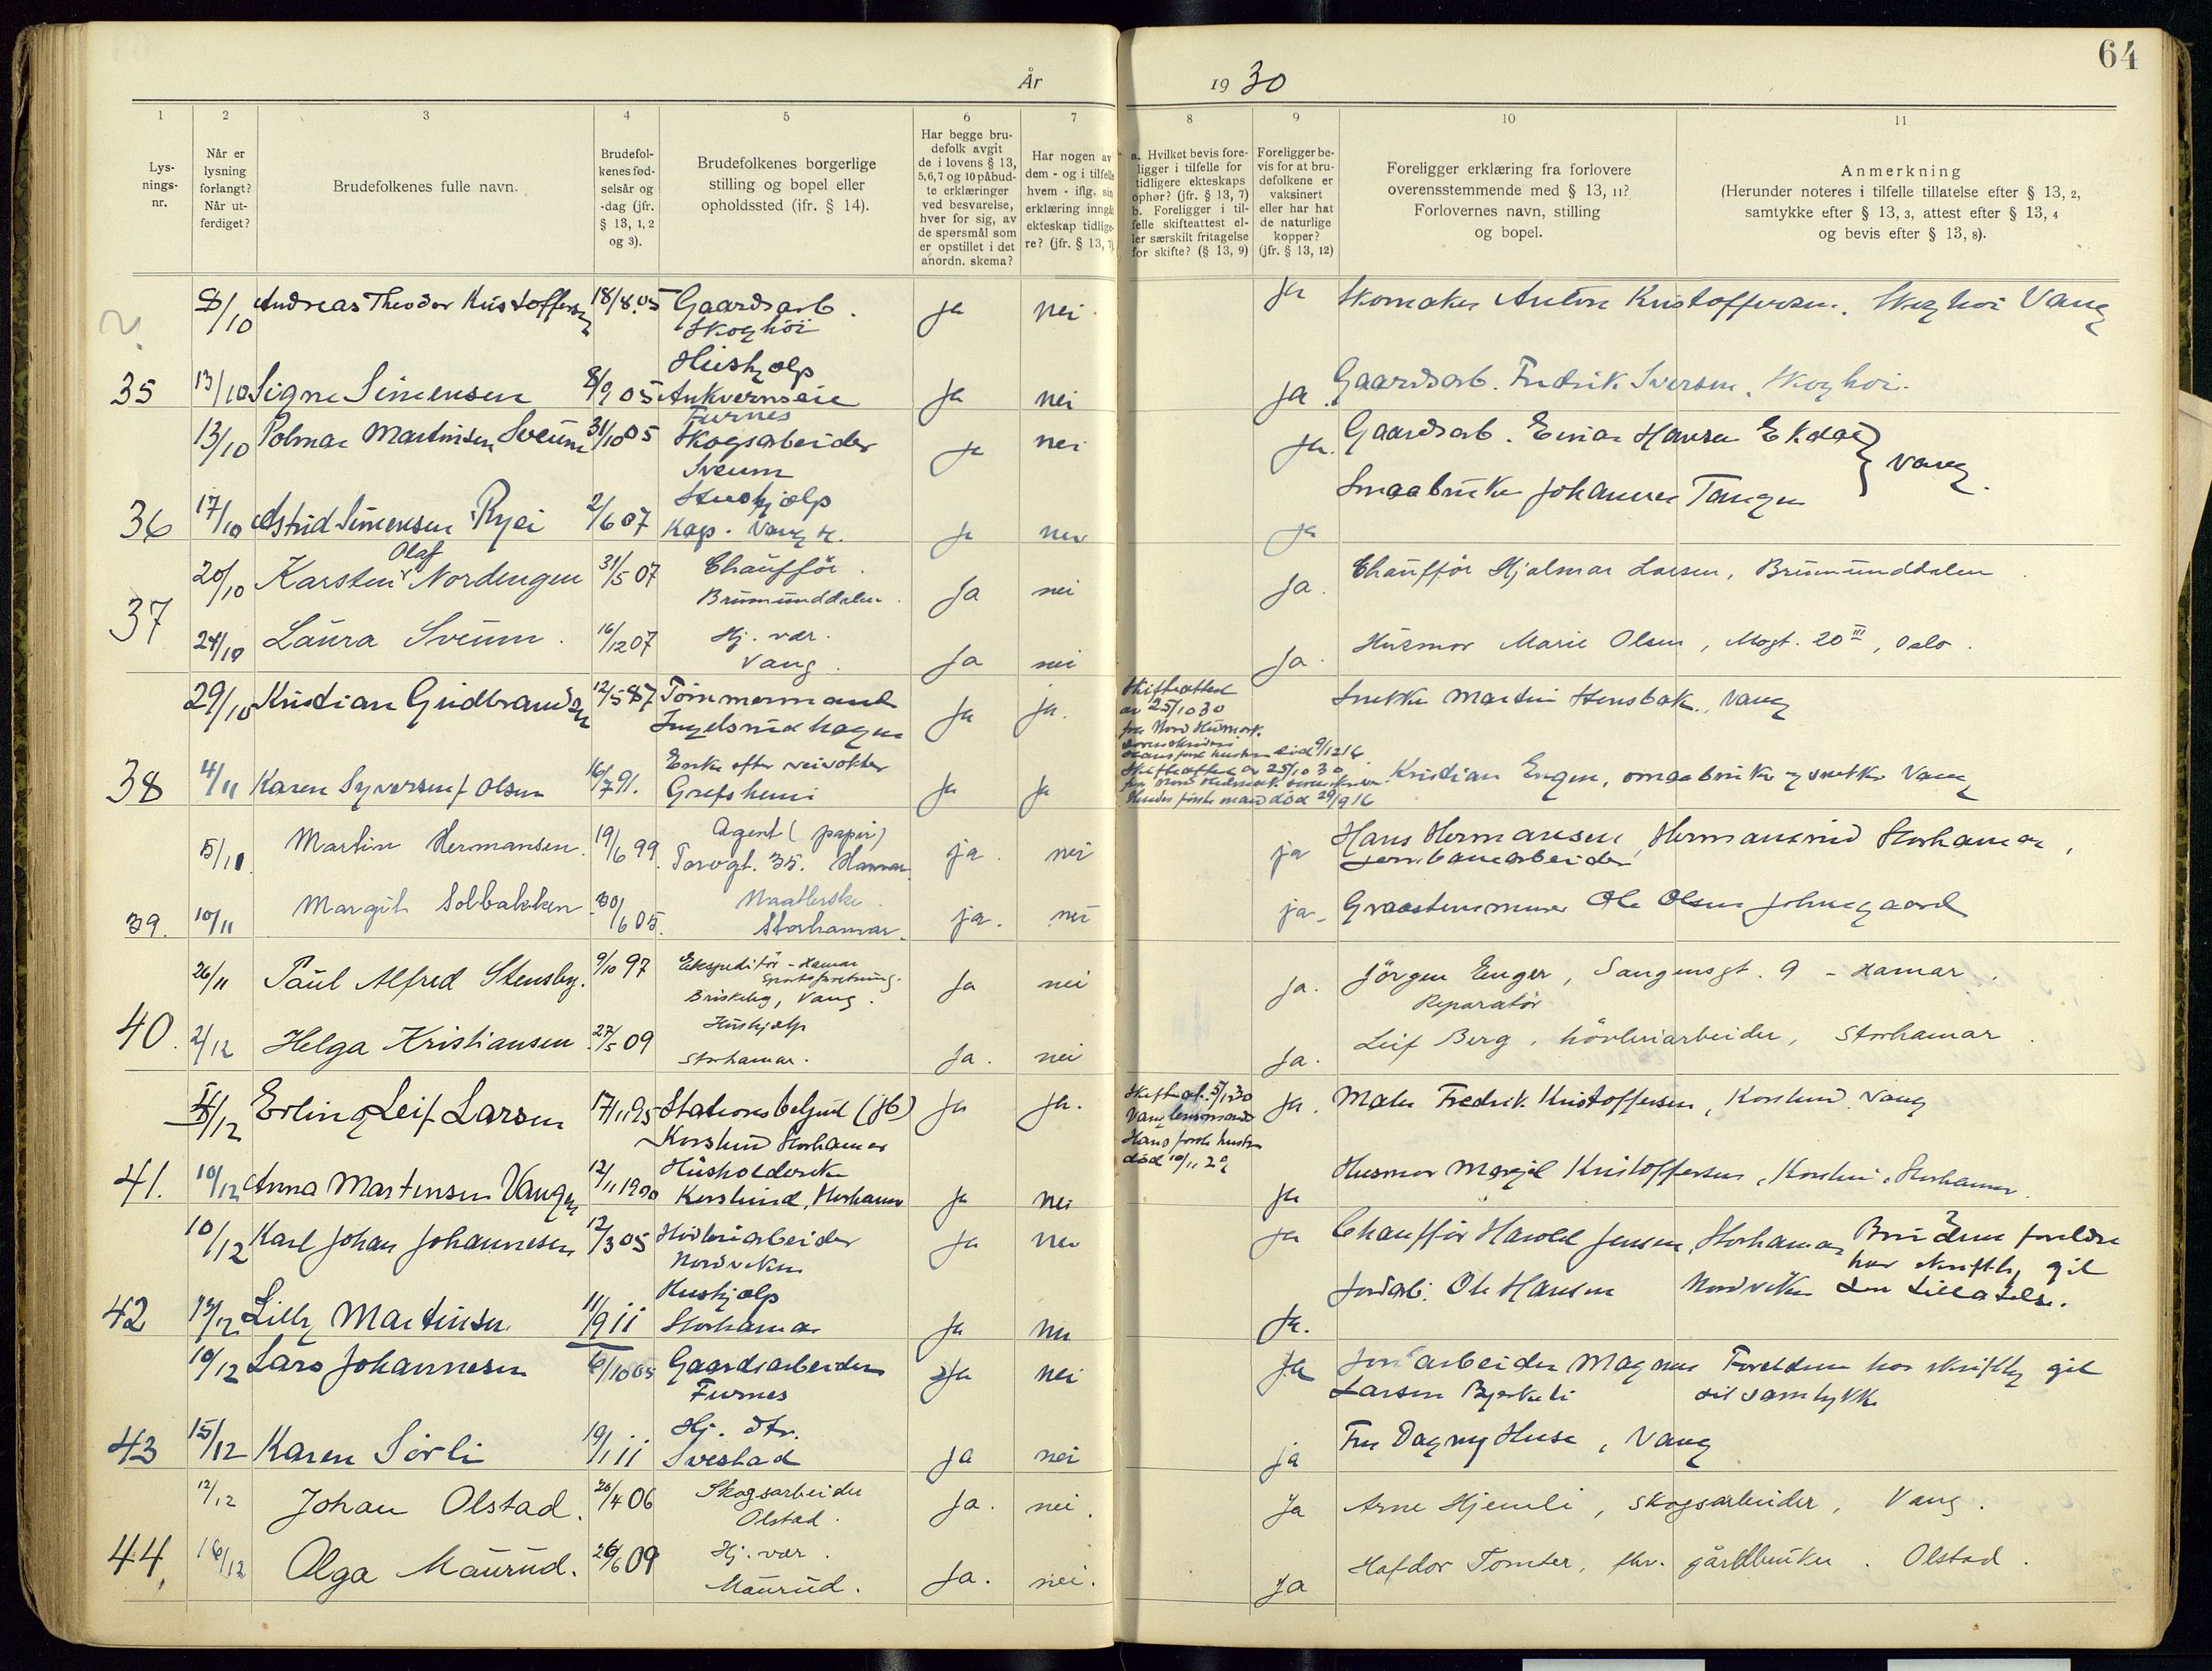 64
År 1930
1 2 3 4 5 6 7 8 9 10 11
Lysnings-nr.
Når er lysning forlangt? Når utferdiget?
Brudefolkenes fulle navn.
Brudefolkenes fødselsår og -dag (jfr. § 13, 1, 2 og 3).
Brudefolkenes borgerlige stilling og bopel eller opholdssted (jfr. § 14).
Har begge brudefolk avgit de i lovens § 13, 5, 6, 7 og 10 påbudte erklæringer ved besvarelse, hver for sig, av de spørsmål som er opstillet i det anordn. skema?
Har nogen av dem - og i tilfelle hvem - iflg. sin erklæring inngå ekteskap tidligere? (jfr. § 13, 7)
a. Hvilket bevis foreligger i tilfelle for tidligere ekteskaps ophør? (jfr. § 13, 7) b. Foreligger i tilfelle skifteattest eller særskilt fritagelse for skifte? (§ 13, 9)
Foreligger bevis for at brudefolkene er vaksinert eller har hat de naturlige kopper? (jfr. § 13, 12)
Foreligger erklæring fra forlovere overensstemmende med § 13, 11? Forlovernes navn, stilling og bopel.
Anmerkning
(Herunder noteres i tilfelle tillatelse efter § 13, 2, samtykke efter § 13, 3, attest efter § 13, 4 og bevis efter § 13, 8).
?
8/10 Andreas Theodor Kristoffersen 18/8.05 Gaardsarb. Ja nei Ja Skomaker Anton Kristoffersen. Skoghoi Vang
Skoghöi
Hushjælp
35 13/10 Signe Simensen 8/9 05 Ankvernseie Ja nei Ja Gaardsarb. Fredrik Iversen. Skoghoi.
Furnes
13/10 Polmar Martinsen Sveum 31/10 05 Skogsarbeider Ja nei Ja. Gaardsarb. Einar Hansen Ekdal } Vang.
Sveum
Smaabruker Johannes Tangen
Hushjælp
36 17/10 Astrid Simensen Ryei 2/6 07 Kap. Vang Ja nei Ja
20/10 Karsten Olaf Nordengen 31/5 07 Chaufför. Ja nei Ja. Chaufför Hjalmar Larsen, Brumunddalen
37 Brumunddalen.
24/10 Laura Sveum. 16/12 07 Hj. vær. Ja nei Ja. Husmor Marie Olsen, Mogt. 20 III, Oslo.
Vang.
29/10 Kristian Gudbrandsen 12/5 87 Tömmermand Ja ja. Snekker Martin Stensbak., Vang
Ingelsrudhagen
Skifteattest av 25/10 30 fra Nord Hedmark
Hans förste hustru död 9/12 16
Enke efter veivokter
38 4/11 Karen Syversen f Olsen 16/7 91. Grefsheim Ja Ja Kristian Engen, smaabruker og snekker Vang
Skifteattest av 25/10 30 fra Nord Hedmark
Hendes förste mand död 29/9 16
5/11 Martin Hermansen. 19/6 99. Agent (papir) ja. nei ja Hans Hermansen, Hermansrud Storhamar,
Torvgt. 35. Hamar. Jernbanearbeider
39. 10/11 Margit Solbakken 30/6 05. Storhamar. ja. nei ja. Graastensmurer Ole Olsen Johnsgaard
26/11 Paul Alfred Stensby. 9/10 97 Ekspeditör - Hamar Ja nei Ja. Jörgen Enger, Sangensgt. 9 - Hamar.
Sportsforretning.
Briskeby, Vang. Reparatör
40. 2/12 Helga Kristiansen 27/5 09 Hushjælp Ja. nei Ja. Leif Berg, hövleriarbeider, Storhamar.
Storhamar.
5/12 Erling Leif Larsen 17/11 95 Stationsbetjent (jb) Ja Ja. Ja. Maler Fredrik Kristoffersen, Korslund. Vang
Korslund Storhamar
Skifteat. 5/12 30 Vang lensmand Hans förste hustru död 10/11 26
Husholderske
41. 10/12 Anna Martinsen Vangen 12/11 1900 Korslund, Storhamar Ja nei Ja Husmor Margit Kristoffersen, Korslund, Storhamar.
10/12 Karl Johan Johannesen 12/3 05 Hövleriarbeider Ja nei Ja Chauffør Harald Jensen, Storhamar Brudens foreldre
Nordviken har skriftlig git
Hushjælp Jordarb. Ole Hansen Nordviken sin tillatelse.
42 13/12 Lilly Martinsen. 11/9 11 Storhamar Ja nei Ja.
10/12 Lars Johannesen 6/10 05 Gaardsarbeider Ja nei Ja Jordarbeider Magnus Foreldrene har skriftlig git
Furnes Larsen Bjerkeli sit samtykke
Hj. dtr.
43 15/12 Karen Sörli 19/1 11 Svestad Ja nei ja Fru Dagny Huse, Vang
12/12 Johan Olstad. 20/4 06 Skogsarbeider Ja. nei. Ja Arne Hjemli, skogsarbeider, Vang.
Olstad.
44. 16/12 Olga Maurud. 26/6 09 Hj. vær. Ja. nei. Ja Hafdor Tomter, fhv. gårdbruker. Olstad.
Maurud.